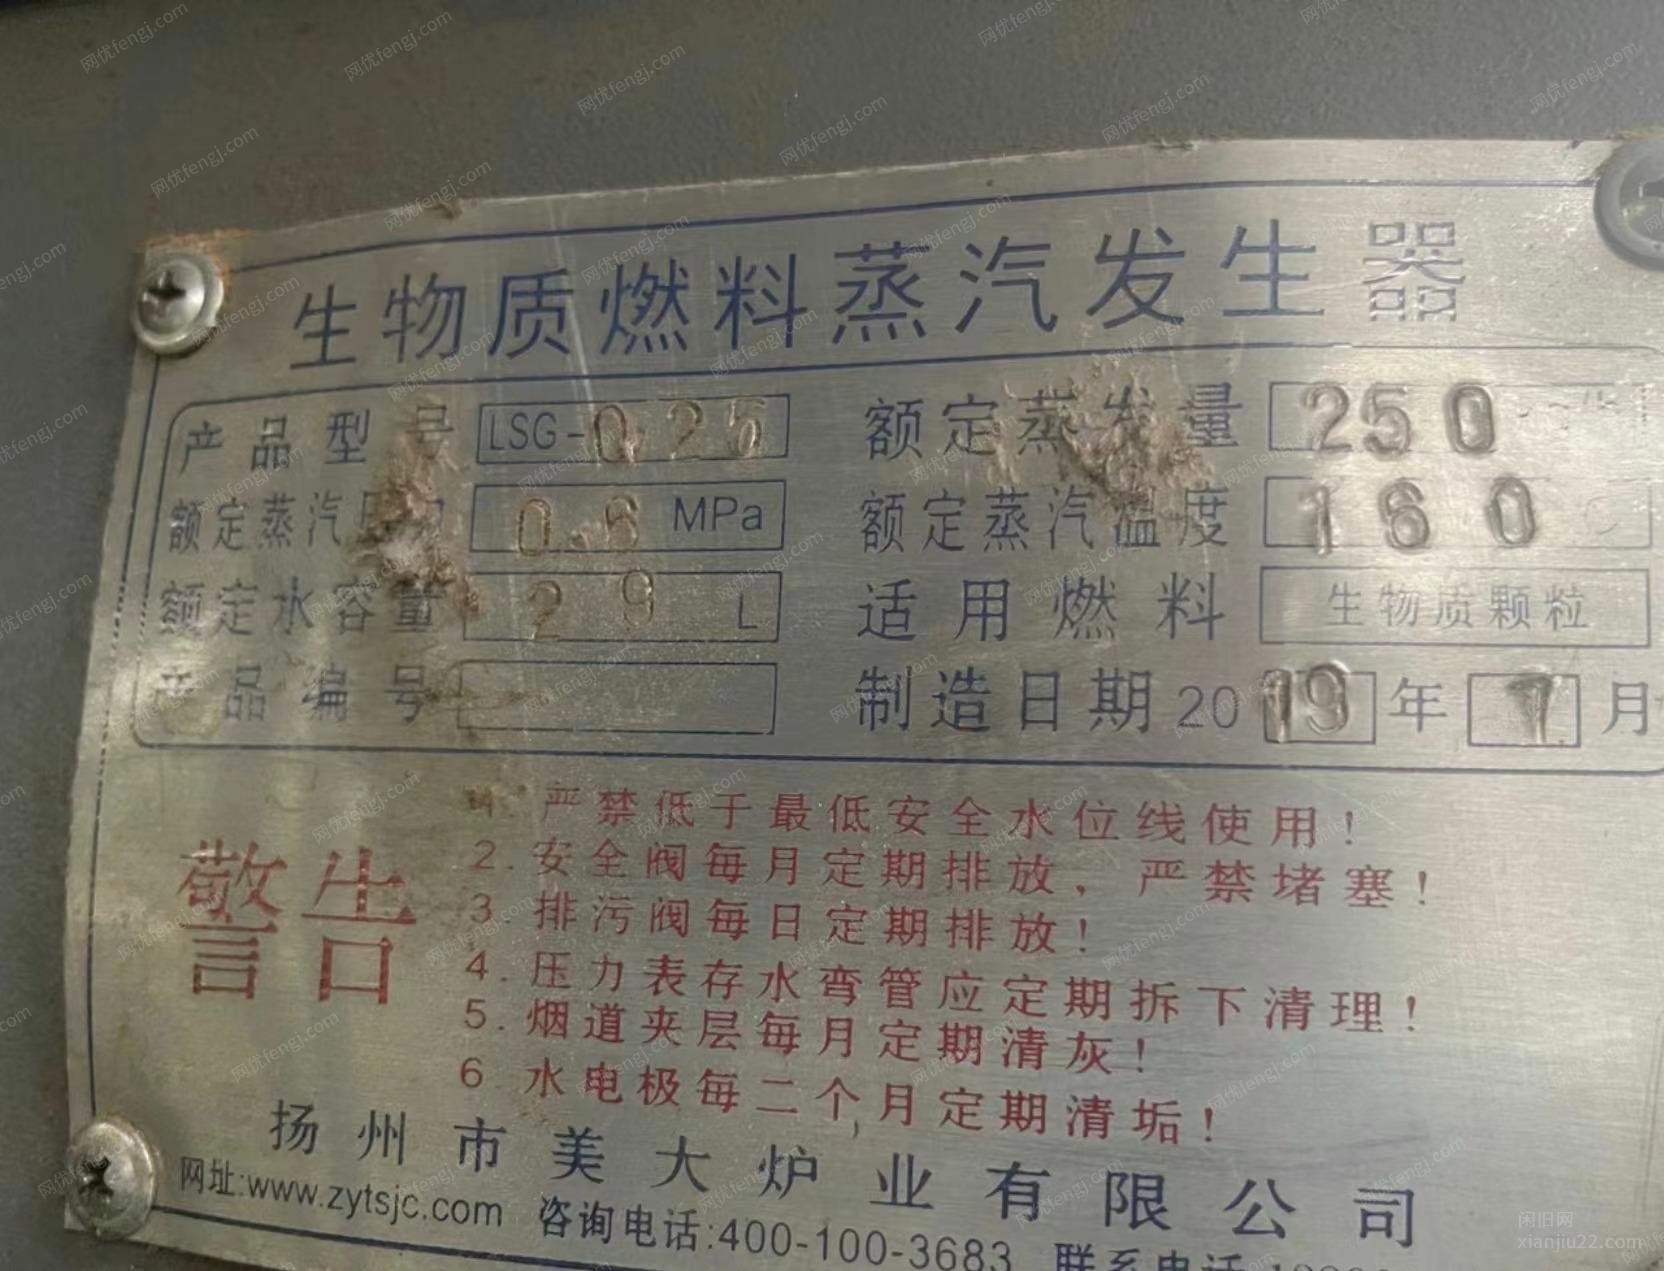 生物质燃料蒸汽发生器
产品型号 LSG-0.25 额定蒸发量 250
额定蒸汽压力 0.6 MPa 额定蒸汽温度 160 ℃
额定水容量 29 L 适用燃料 生物质颗粒
产品编号 制造日期 2019年 1月
警告
1. 严禁低于最低安全水位线使用!
2. 安全阀每月定期排放，严禁堵塞!
3. 排污阀每日定期排放!
4. 压力表存水弯管应定期拆下清理!
5. 烟道夹层每月定期清灰!
6 水电极每二个月定期清垢!
扬州市美大炉业有限公司
网址:www.zytsjc.com 咨询电话:400-100-3683 联系电话
网优fengj.com
闲旧网
xianjiu22.com